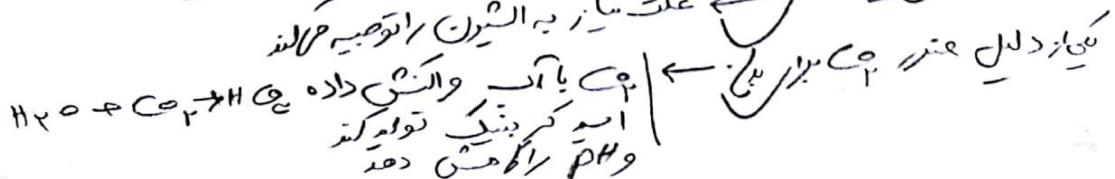 ← علت نیاز به اکسیژن را توجیه می‌کند
یکی از دلیل ضرر CO₂ برای بدن ← CO₂ با آب واکنش داده H₂O + CO₂ → H CO₃
اسید کربنیک تولید کند
و pH را کاهش دهد